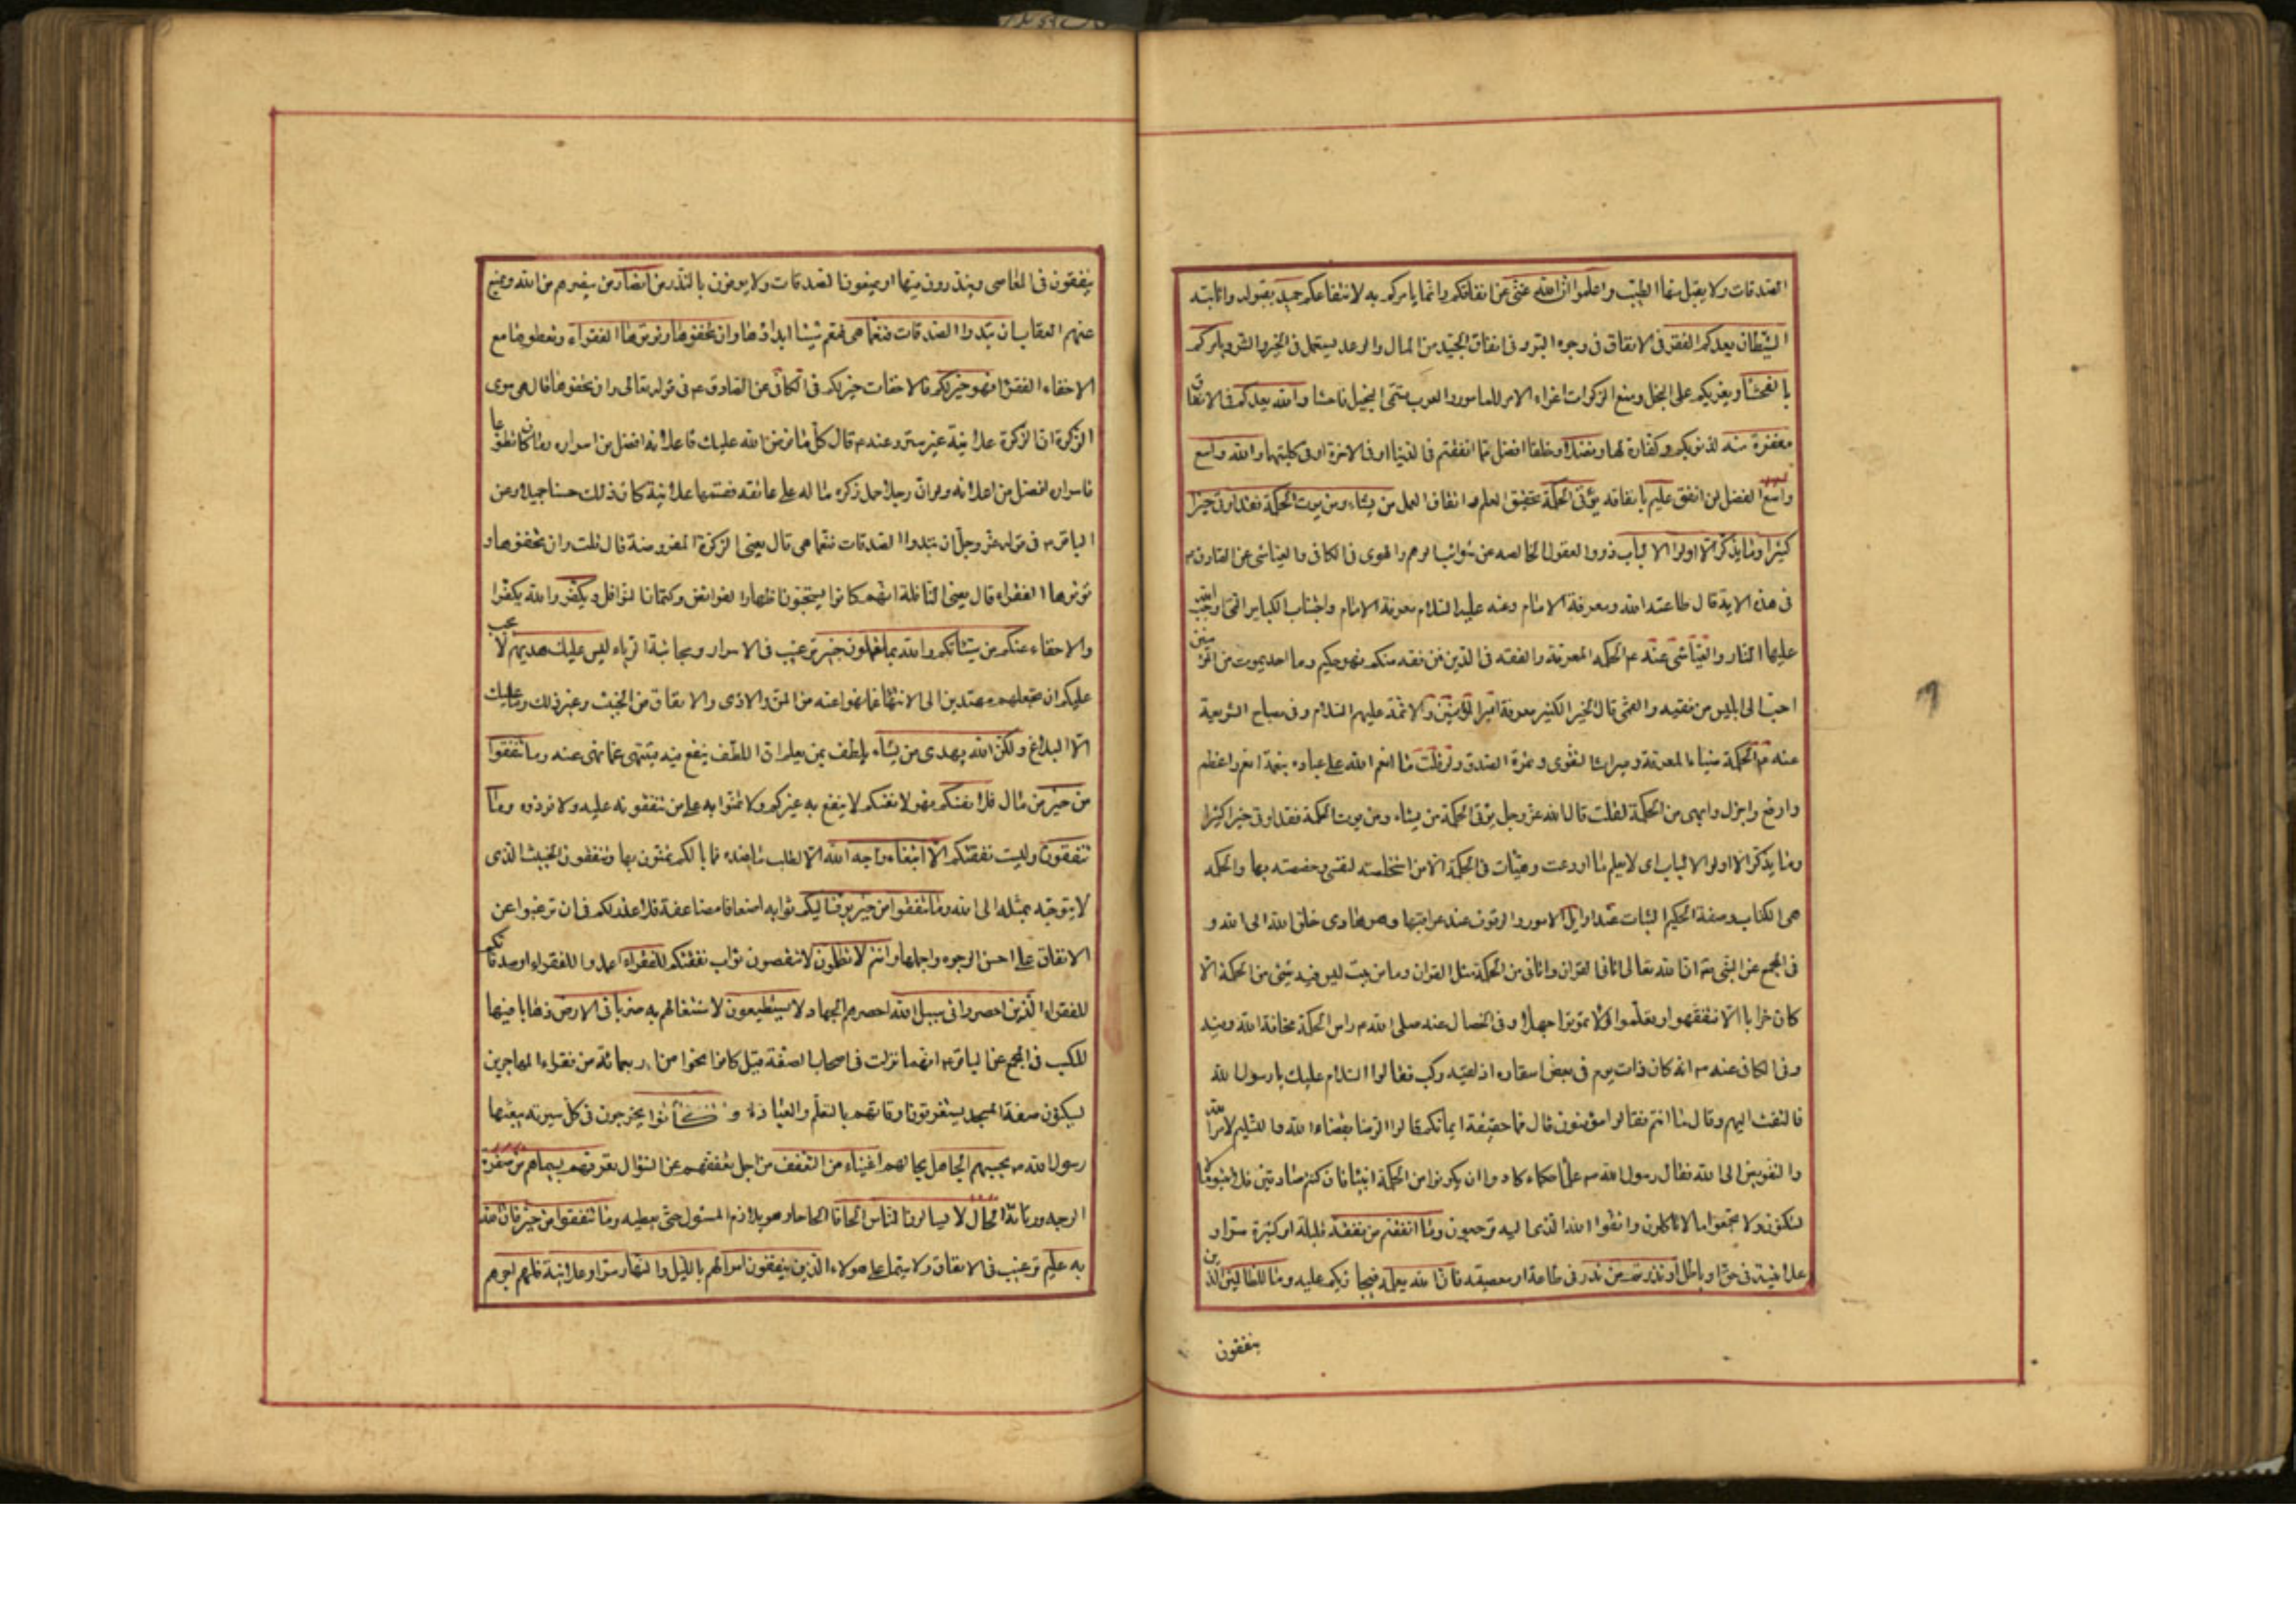 الصدقات ولا يقبل منها الا الطيب واعلموا ان الله غنى عن نفاقكم وانما يامركم به لانتفاعكم حميد بقبوله واثابته
الشيطان يعدكم الفقر فى الانفاق فى وجوه البر و فى انفاق الجيد من المال والوعد يستعمل فى الخير والشر ويامركم
بالفحشاء ويغريكم على البخل ومنع الزكوات اغراء الامر للمامور والعرب يسمى البخيل فاحشا والله يعدكم فى الانفاق
مغفرة منه لذنوبكم وكفارة لها وفضلا وخلفا افضل مما انفقتم فى الدنيا او فى الاخرة او فى كليتهما والله واسع
واسع الفضل لمن انفق عليم بانفاقه يؤتى الحكمة تحقيق العلم و اتقان العمل من يشاء ومن يوت الحكمة فقد اوتى خيرا
كثيرا وما يذكر الا اولوا الالباب ذووا العقول الخالصه عن شوائب الوهم والهوى فى الكافى والعياشى عن الصادق ع
فى هذه الاية قال طاعته الله ومعرفة الامام وعنه عليه السلام معرفة الامام واجتناب الكباير التى اوجب الله
عليها النار والعياشى عنه ع الحكمه المعرفة والفقه فى الدين فمن فقه منكم فهو حكيم وما احد يموت من المؤمنين
احب الى ابليس من فقيه والقمى قال الخير الكثير معرفة امير المؤمنين والائمة عليهم السلام وفى مصباح الشريعة
عنه ع الحكمة ضياء المعرفة وميراث التقوى وثمرة الصدق ولو قلت ما انعم الله على عباده بنعمة انعم واعظم
وارفع واجزل وابهى من الحكمة لقلت قال الله عز وجل يؤتى الحكمة من يشاء ومن يوت الحكمة فقد اوتى خيرا كثيرا
وما يذكر الا اولوا الالباب اى لا يعلم ما اودعت وهيات فى الحكمة الا من استخلصته لنفسى وخصصته بها والحكمه
هى الكتاب وصفة الحكيم الثبات عند اوايل الامور والوقوف عند عواقبها وهو هادى خلق الله الى الله و
فى المجمع عن النبى ص ان الله تعالى اتانى القران واتانى من الحكمة مثل القران وما من بيت ليس فيه شئ من الحكمة الا
كان خرابا الا تفقهوا وتعلموا ولا تموتوا جهلا و فى الخصال عنه صلى الله ص راس الحكمة مخافة الله وفيه
وفى الكافى عنه ص انه كان ذات يوم فى بعض اسفاره اذ لقيه ركب فقالوا السلام عليك يا رسول الله
فالتفت اليهم وقال ما انتم فقالوا مؤمنون قال فما حقيقة ايمانكم قالوا الرضا بقضاء الله والتسليم لامر الله
والتفويض الى الله فقال رسول الله ص علماء حكماء كادوا ان يكونوا من الحكمة انبياء فان كنتم صادقين فلا تبنوا ما لا
تسكنون ولا تجمعوا ما لا تاكلون واتقوا الله الذى اليه ترجعون وما انفقتم من نفقة قليلة او كثيرة سرا و
علانية فى حق او باطل او نذرتم من نذر فى طاعة او معصيه فان الله يعلمه فيجازيكم عليه وما للظالمين الذين
ينفقون
ينفقون فى المعاصى وينذرون فيها او يمنعون الصدقات ولا يوفون بالنذر من انصار من ينصرهم من الله ويمنع
عنهم العقاب ان تبدوا الصدقات فنعما هى فنعم شيئا ابداؤها وان تخفوها وتؤتوها الفقراء وتعطوها مع
الاخفاء الفقراء فهو خير لكم فالاخفات خير لكم فى الكافى عن الصادق ع فى قوله تعالى وان تخفوها قال هى سوى
الزكوة ان الزكوة علانية غير سر وعنه ع قال كل ما فرض الله عليك فاعلانه افضل من اسراره وما كان تطوعا
فاسراره افضل من اعلانه ولو ان رجلا حمل زكوة ماله على عاتقه فقسمها علانية كان ذلك حسنا جميلا وعن
الباقر ع فى قوله عز وجل ان تبدوا الصدقات فنعما هى قال يعنى الزكوة المفروضة قال قلت وان تخفوها و
تؤتوها الفقراء قال يعنى النافلة انهم كانوا يستحبون اظهار الفرائض وكتمان النوافل ويكفر والله يكفر او
والاخفاء عنكم من سيئاتكم والله بما تعملون خبير ترغيب فى الاسرار ومجانبة الرياء ليس عليك هديهم لا يجب
عليك ان تجعلهم مهتدين الى الانتهاء عما نهوا عنه من المن والاذى والانفاق من الخبيث وغير ذلك وما عليك
الا البلاغ ولكن الله يهدى من يشاء يلطف بمن يعلم ان اللطف ينفع فيه فينتهى عما نهى عنه وما تنفقوا
من خير من مال فلانفسكم فهو لانفسكم لا ينفع به غيركم ولا تمنوا به على من تنفقونه عليه ولا تؤذوه وما
تنفقون وليست نفقتكم الا ابتغاء وجه الله الا لطلب ما عنده فما بالكم تمنون بها وتنفقون الخبيث الذى
لا يتوجه بمثله الى الله وما تنفقوا من خير يوف اليكم ثوابه اضعافا مضاعفة فلا عذر لكم فى ان ترغبوا عن
الانفاق على احسن الوجوه واجملها وانتم لا تظلمون لا تنقصون ثواب نفقتكم للفقراء اعمدوا للفقراء او صدقاتكم
للفقراء الذين احصروا فى سبيل الله احصرهم الجهاد لا يستطيعون لاشتغالهم به ضربا فى الارض ذهابا فيها
للكسب فى المجمع عن الباقر ع انهما نزلت فى اصحاب الصفة قيل كانوا نحوا من اربعمائة من فقراء المهاجرين
يسكنون صفة المسجد يستغرقون اوقاتهم بالتعلم والعبادة و كانوا يخرجون فى كل سرية يبعثها
رسول الله ص يحسبهم الجاهل بحالهم اغنياء من التعفف من اجل تعففهم عن السؤال تعرفهم بسيماهم من صفرة
الوجه ورثاثة الحال لا يسالون الناس الحافا الحاحا وهو يلازم المسئول حتى يعطيه وما تنفقوا من خير فان الله
به عليم ترغيب فى الانفاق ولا سيما على هولاء الذين ينفقون اموالهم بالليل والنهار سرا وعلانية فلهم اجرهم